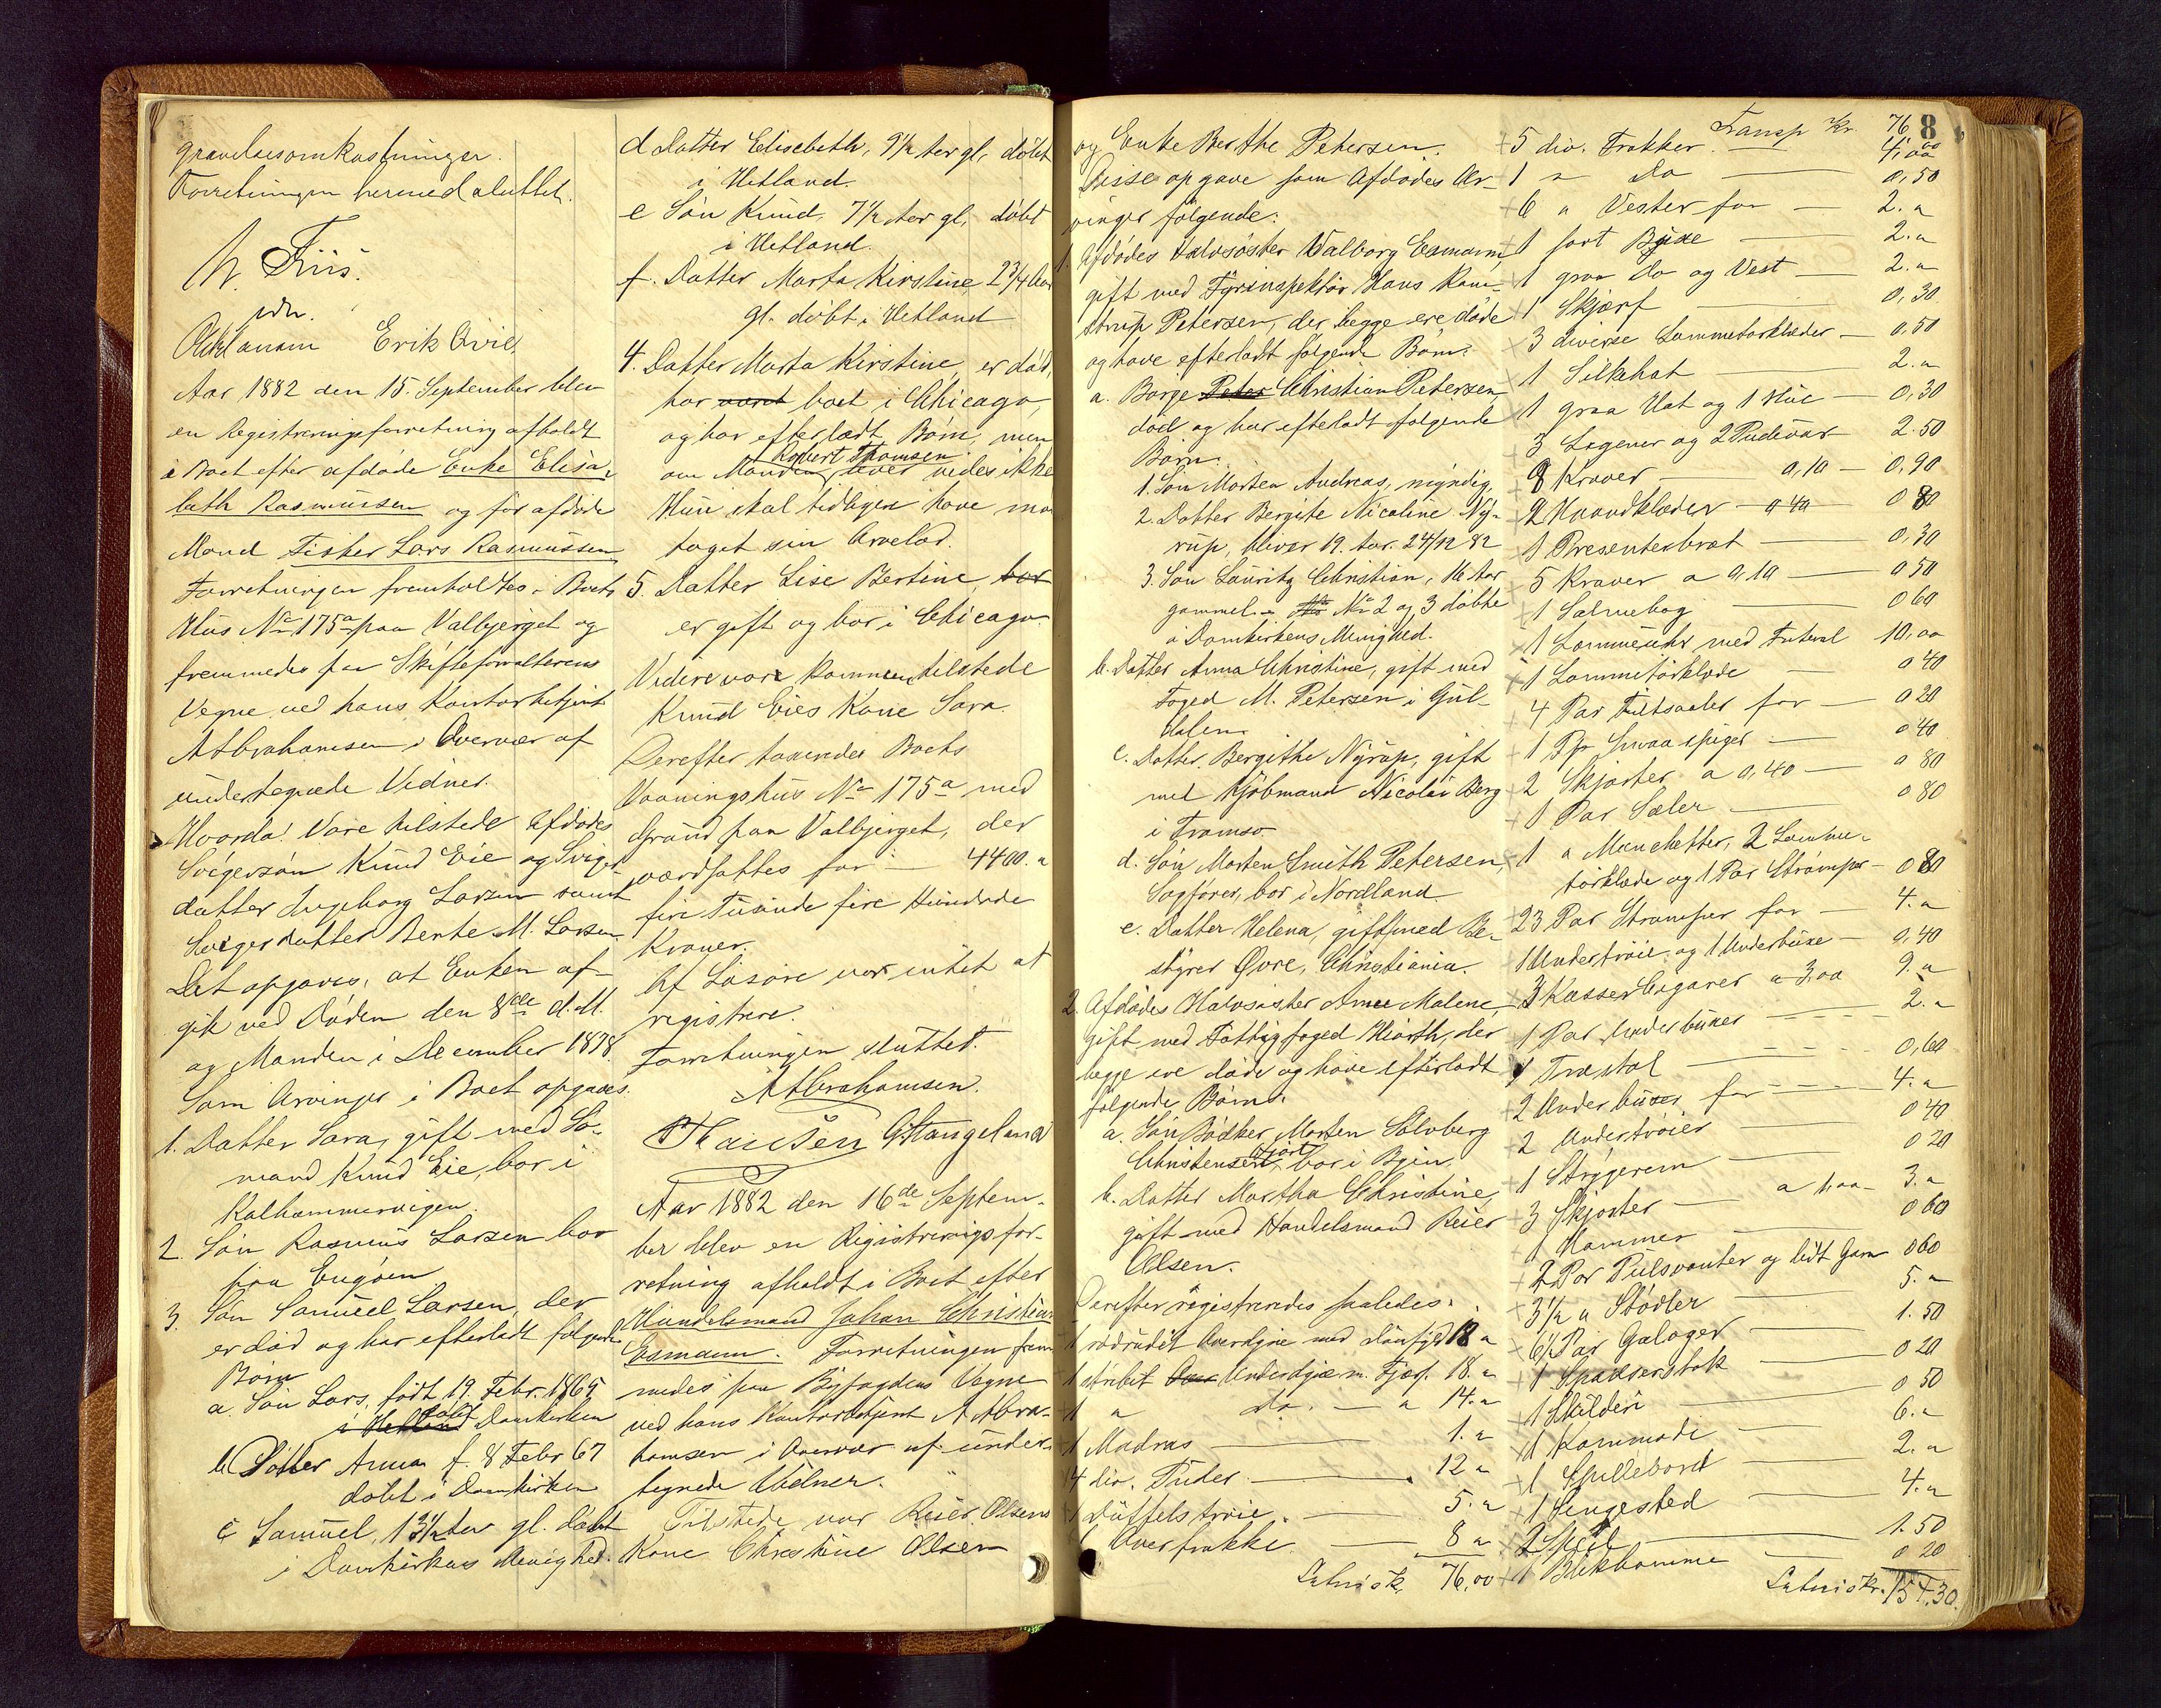 gravelsesomkostninger.
Forretningen hermed sluttet.
N. Friis.
edv.
Erik Qvie.
Aar 1882 den 15. September blev
en Registreringsforretning afholdt
i Boet efter afdøde Enke Elisa-
beth Rasmussen og før afdøde
Mand Fisker Lars Rasmussen
Forretningen fremholdtes i Boets
Hus No 175a paa Valbjerget og
fremmedes paa Skifteforvalterens
Vegne ved hans Kontorbetjent
A Abrahamsen i Overvær af
undertegnede Vidner.
Hvorda! Vare tilstede Afdødes
Svigersøn Knud Eie og Sviger
datter Ingeborg Larsen samt
Svigerdatter Berte M. Larsen.
Det opgaves, at Enken af-
gik ved Døden den 8de d. M.
og Manden i December 1878.
Som Arvinger i Boet opgaves.
1. Datter Sara, gift med Sø-
mand Knud Eie, bor i
Kalhammervigen.
2. Søn Rasmus Larsen bor
paa Engøen
3. Søn Samuel Larsen, der
er død og har efterladt følgende
Børn
a. Søn Lars, født 19. Febr. 1865
i Hetland døbt Domkirken
b. Datter Anna f. 8 Febr 67
døbt i Domkirken
c Samuel, 13 1/2 Aar gl. døbt
i Domkirkens Menighed.
d Datter Elisebeth, 9 1/2 Aar gl. døbt
i Hetland.
e Søn Knud, 7 1/2 Aar gl, døbt
i Hetland.
f. Datter Marta Kirstine, 2 3/4 Aar
gl. døbt i Hetland
4. Datter Marta Kirstine, er død,
har været boet i Chicago,
og har efterladt Børn, men
Robert Thomsen
om Manden lever vides ikke
Hun skal tidligere have mod
taget sin Arvelod.
5. Datter Lise Bertine, bor
er gift og bor i Chicago.
Videre vare kommen tilstede
Knud Eies Kone Sara.
Derefter taxeredes Boets
Vaaningshus No 175a med
Grund paa Valbjerget, der
værdsattes for — 4400. "
fire Tusinde fire Hundrede
Kroner.
Af Løsøre var intet at
registrere.
Forretningen sluttet.
A Abrahamsen.
Hansen G Stangeland
Aar 1882 den 16de Septem-
ber blev en Registreringsfor-
retning afholdt i Boet efter
Handelsmand Johan Christian
Esmann. Forretningen frem
medes paa Byfogdens Vegne
ved hans Kontorbetjent A Abra-
hamsen i Overvær af under-
tegnede Vidner.
Tilstede var Reier Olsens
Kone Christine Olsen
og Enke Berthe Petersen.
Disse opgave som Afdødes Ar-
vinger følgende:
1. Afdødes Halvsøster Valborg Esmann,
gift med Fyrinspektør Hans Ram-
strup Petersen, der begge ere døde
og have efterladt følgende Børn:
a. Børge Peter Christian Petersen,
død og har efterladt følgende
Børn:
1. Søn Morten Andreas, myndig.
2. Datter Bergite Nicoline Ny-
rup, bliver 19. Aar. 24/12 82
3. Søn Lauritz Christian, 16 Aar
gammel. No 2 og 3 døbte
i Domkirkens Menighed.
b. Datter Anna Christine, gift med
Foged M. Petersen i Gul-
dalen
c. Datter Bergithe Nyrup, gift
med Kjøbmand Nicolai Berg
i Tromsø
d. Søn Morten Smith Petersen,
Sagfører, bor i Nordland
e. Datter Helena, gift med Be-
styrer Qvre, Christiania.
2. Afdødes Halvsøster Anne Malene,
gift med Fattigfoged Hiorth, der
begge ere døde og have efterladt
følgende Børn.
a. Søn Bødker Morten Solvberg
Christensen Hjort, bor i Byen
b. Datter Martha Christine,
gift med Handelsmand Reier
Olsen.
Derefter registreredes saaledes.
1 rødrudet Overdyne med Dunfyld 18 "
1 stribet Over Underdyne m. Fjær. 18. "
1 " do. — " 14. "
1 Madras — 1. "
4 div. Puder — 12 "
1 Duffelstrøie — 5. "
1 Overfrakke — 8 "
Latus K. 76,00
Transp Kr. 76,00
8
5 div. Frakker 4,00
1 " Do — 0,50
6 " Vester for — 2. "
1 sort Buxe — 2. "
1 graa do og Vest — 2. "
1 Skjærf — 0,30
3 diverse Lommetørklæder — 0,50
1 Silkehat — 2. "
1 graa Hat og 1 Hue — 0,30
3 Lagener og 2 Pudevar — 2.50
9 Kraver — 0,10 — 0,90
2 Haandklæder — 0 40 — 0 80
1 Presenterbræt — 0,30
5 Kraver a 0,10 — 0 50
1 Salmebog — 0 60
1 Lommeuhr med Futeral 10,00
1 Lommetørklæde — 0 40
4 Par Filtsaaler for — 0 20
1 Pp Smaaspiger — 0 40
2 Skjorter a 0,40 — 0 80
1 Par Sæler — 0 80
1 " Manchetter, 2 Lomme-
tørklæde og 1 Par Strømper — 0 80
23 Par Strømper for — 4. "
1 Undertrøie og 1 Underbuxe — 0,40
3 Kasser Cigarer a 3,00 9. "
1 Par Underbuxer — 2. "
1 Træstol — 0,60
2 Underbuxer for — 4. "
2 Undertrøier — 0 40
1 Strygerem — 0 20
3 Skjorter — a 1,00 — 3. "
1 Hammer — 0 60
2 Par Pulsvanter og lidt Garn 0 60
3 1/2 " Støvler — 5. "
6 Par Galoger — 1.50
1 Spadserstok — 0 20
1 Skilderi — 0 50
1 Kommode — 6. "
1 Spillebord — 2. "
1 Sengested — 4. "
2 Speil — 1.50
1 Blikkomme — 0 20
Latus Kr. 154.30.